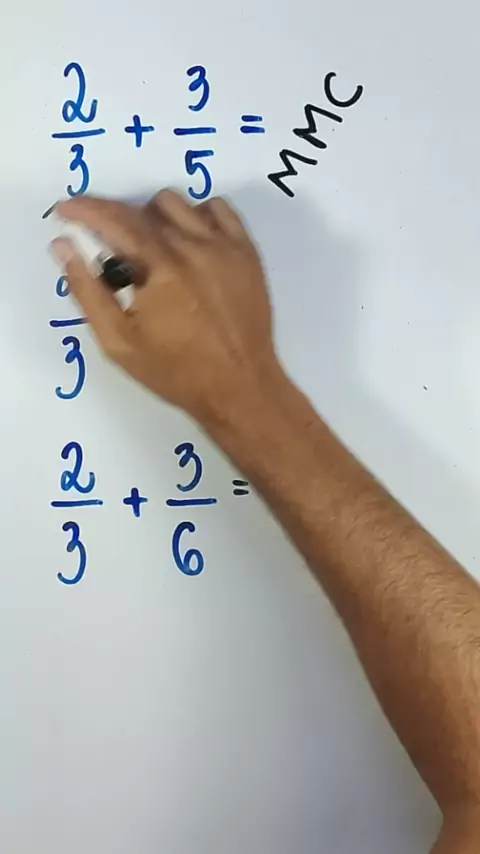 2/3 + 3/5 = MMC
/3
2/3 + 3/6 =